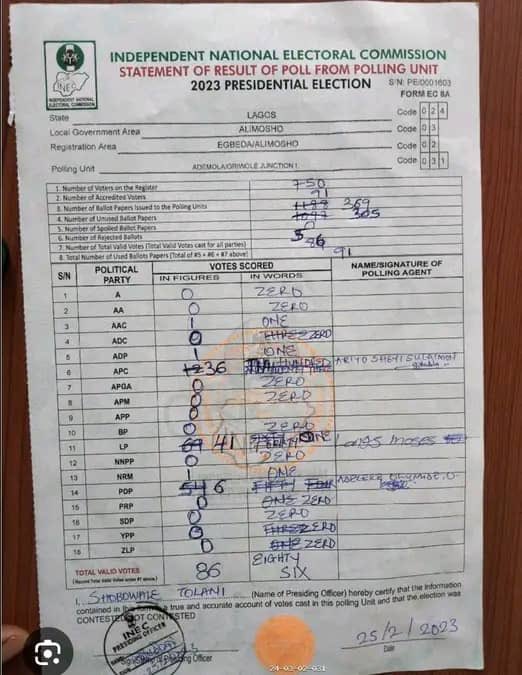 INDEPENDENT NATIONAL ELECTORAL COMMISSION
STATEMENT OF RESULT OF POLL FROM POLLING UNIT
2023 PRESIDENTIAL ELECTION
S/N: PE/0001603
FORM EC 8A
INEC
INDEPENDENT NATIONAL ELECTORAL COMMISSION
State LAGOS Code 0 2 4
Local Government Area ALIMOSHO Code 0 3
Registration Area EGBEDA/ALIMOSHO Code 0 2
Polling Unit ADEMOLA/ORIWOLE JUNCTION I. Code 0 3 1
1. Number of Voters on the Register 750
2. Number of Accredited Voters 91
3. Number of Ballot Papers Issued to the Polling Units
4. Number of Unused Ballot Papers
5. Number of Spoiled Ballot Papers 0
6. Number of Rejected Ballots 5
7. Number of Total Valid Votes (Total Valid Votes cast for all parties) 86
8. Total Number of Used Ballots Papers (Total of #5 + #6 + #7 above) 91
S/N POLITICAL PARTY VOTES SCORED NAME/SIGNATURE OF POLLING AGENT
IN FIGURES IN WORDS
1 A 0 ZERO
2 AA 0 ZERO
3 AAC 1 ONE
4 ADC 0 THREE ZERO
5 ADP 1 ONE
6 APC 36
7 APGA 0 ZERO
8 APM 0 ZERO
9 APP 0
10 BP 0 ZERO
11 LP 41 ONE
12 NNPP 0 ZERO
13 NRM 1 ONE
14 PDP 54 6 FIFTY FOUR
15 PRP 0 ONE ZERO
16 SDP 0 ZERO
17 YPP 0 THREE ZERO
18 ZLP 0 ONE ZERO
TOTAL VALID VOTES 86 EIGHTY SIX
I, SHOBOWALE TOLANI (Name of Presiding Officer) hereby certify that the information
contained in this form is a true and accurate account of votes cast in this polling Unit and that the election was
CONTESTED/NOT CONTESTED
INEC
PRESIDING OFFICER
Signature of Presiding Officer
25/2/2023
Date
24-03-02-031